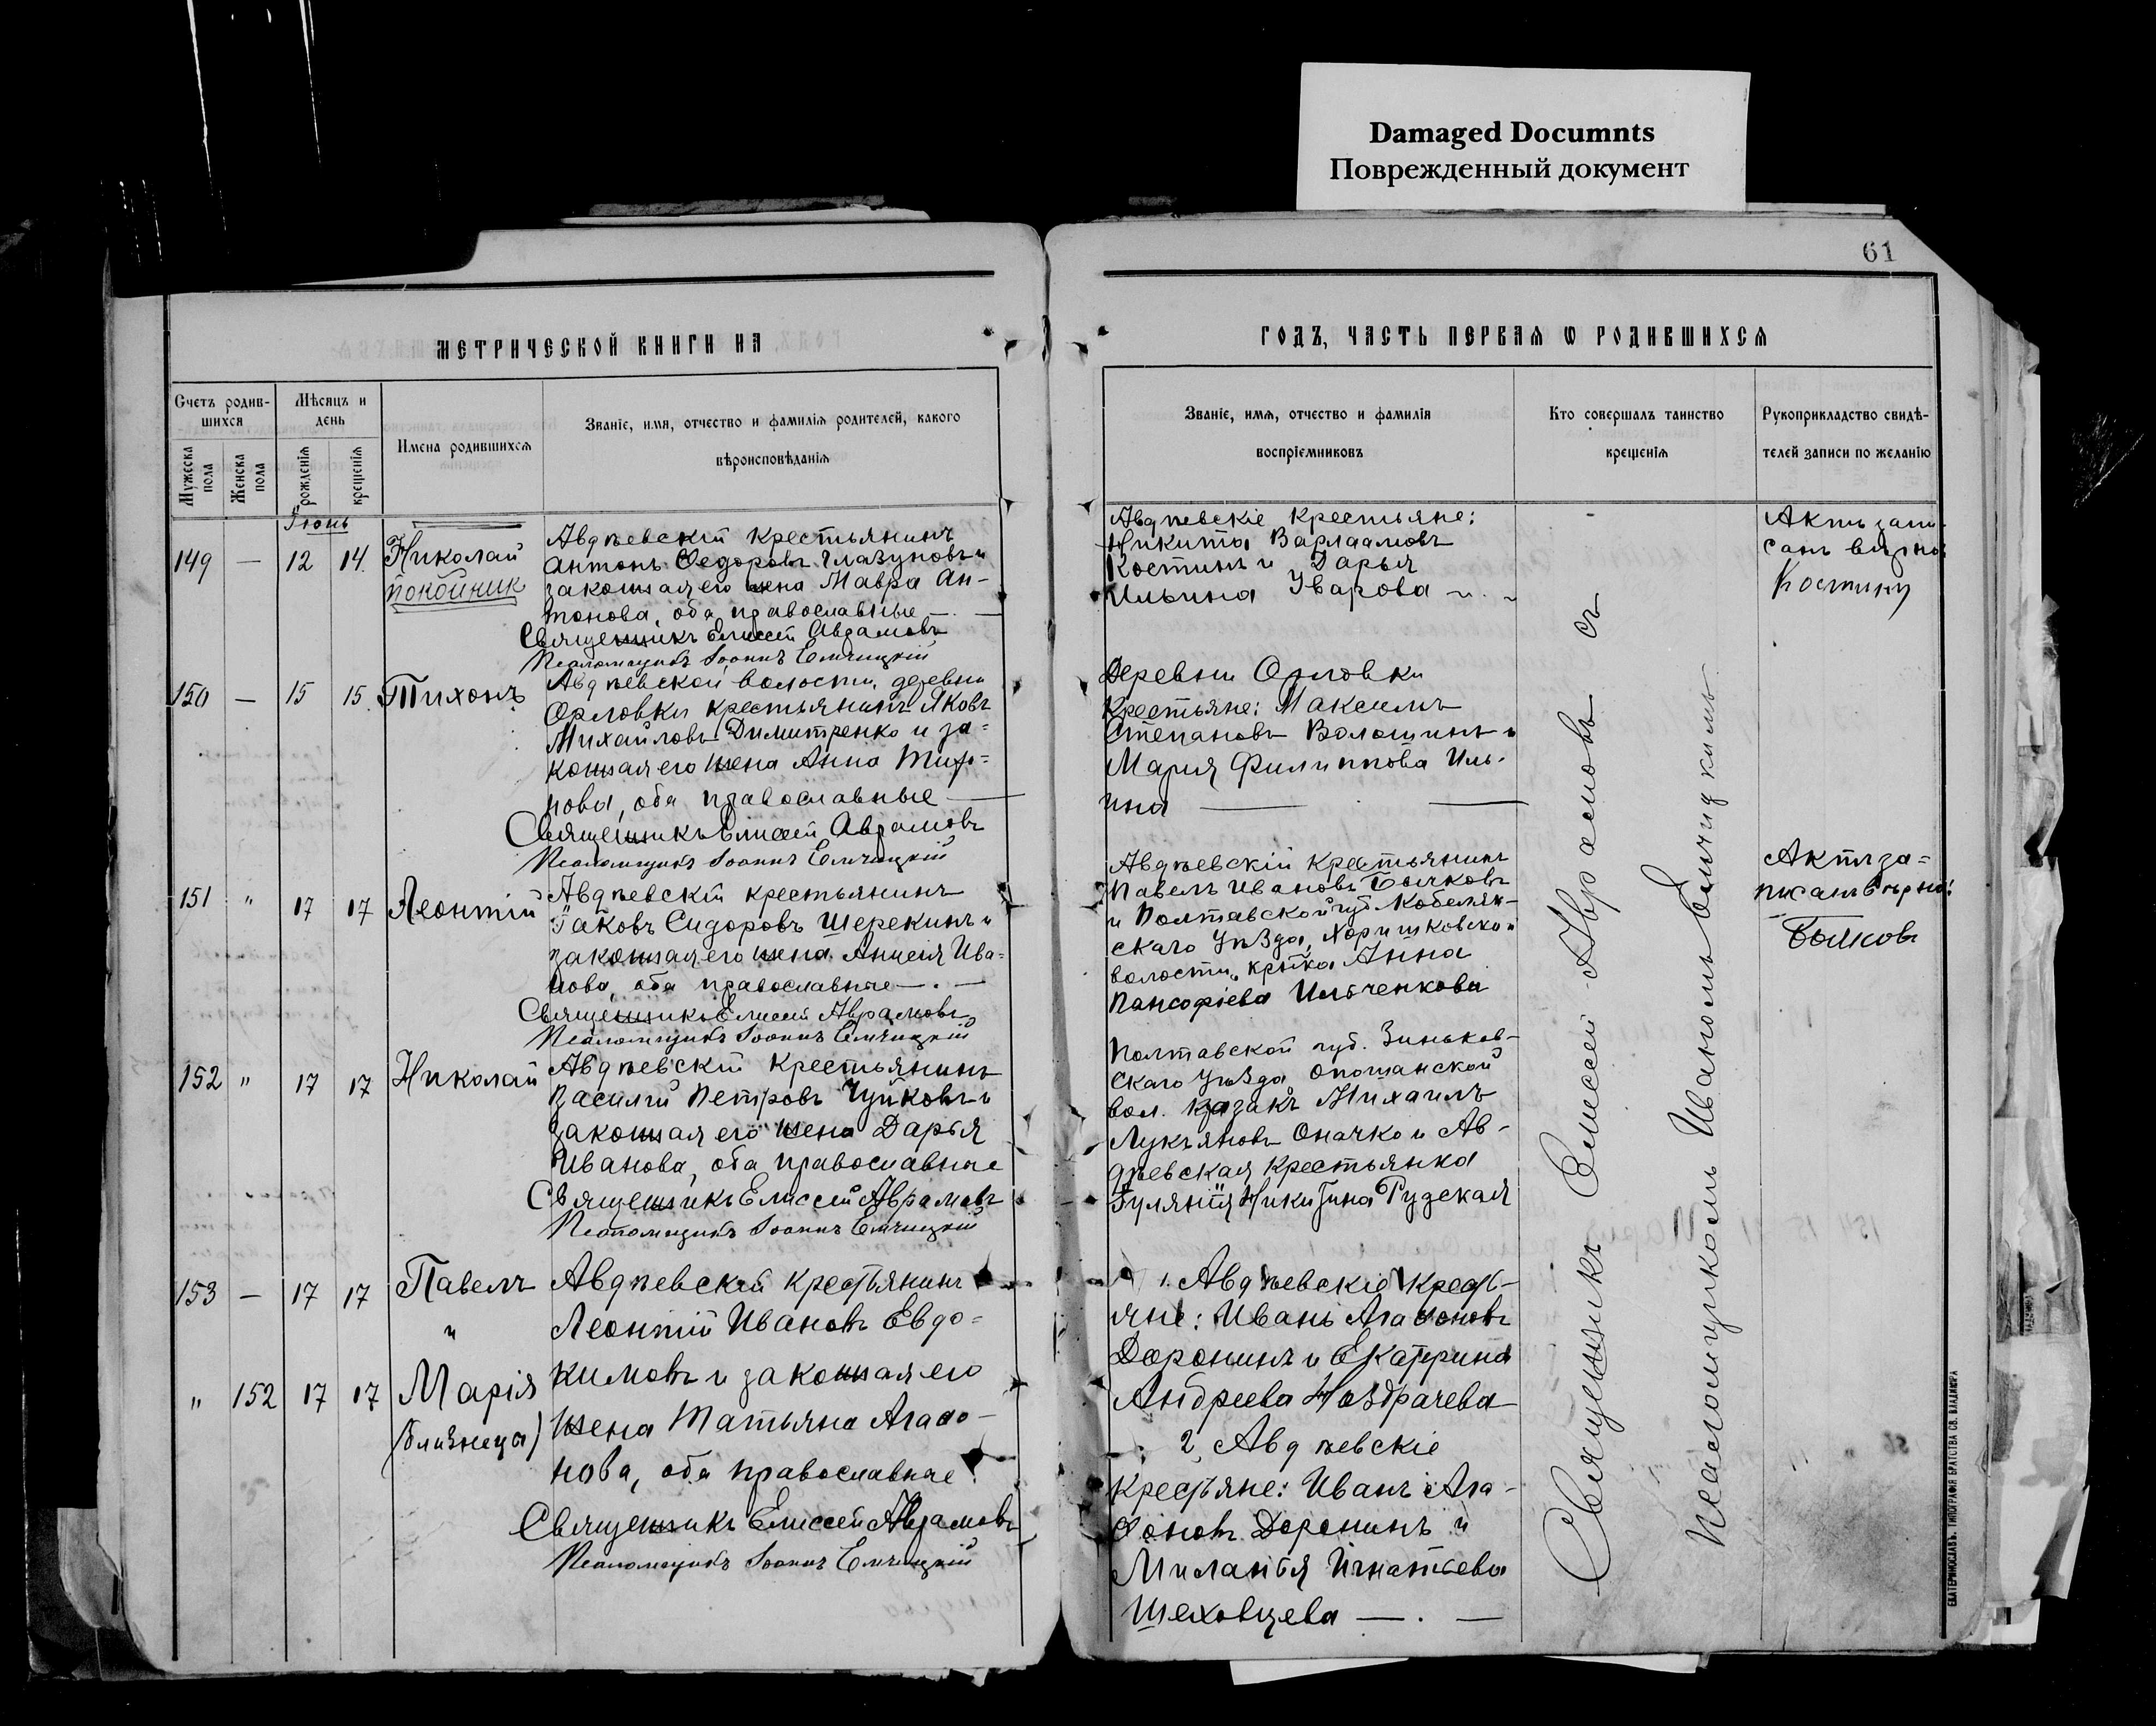 Damaged Documnts
Поврежденный документ
61
МЕТРИЧЕСКОЙ КНИГИ НА
ГОДЪ, ЧАСТЬ ПЕРВАЯ Ѡ РОДИВШИХСЯ
Счетъ родив-
шихся
Мужеска
пола
Женска
пола
Мѣсяцъ и
день
рожденія
крещенія
Имена родившихся
Званіе, имя, отчество и фамилія родителей, какого
вѣроисповѣданія
Званіе, имя, отчество и фамилія
воспріемниковъ
Кто совершалъ таинство
крещенія
Рукоприкладство свидѣ-
телей записи по желанію
Іюнь
149 — 12 14. Николай
покойник
Авдѣевскій крестьянинъ
Антонъ Ѳедоровъ Глазуновъ и
законная его жена Мавра Ан-
тонова, оба православные —. —
Священникъ Елисей Аврамовъ
Псаломщикъ Іоаннъ Емчицкій
Авдѣевскіе крестьяне:
Никита Варлаамовъ
Костинъ и Дарья
Ильина Уварова
Актъ запи-
санъ вѣрно:
Костинъ
150 — 15 15. Тихонъ
Авдѣевской волости, деревни
Орловки крестьянинъ Яковъ
Михайловъ Димитренко и за=
конная его жена Анна Тифо=
нова, оба православные —
Священникъ Елисей Аврамовъ
Псаломщикъ Іоаннъ Емчицкій
Деревни Орловки
крестьяне: Максимъ
Степановъ Волошинъ и
Марія Филиппова Иль-
ина —
151 " 17 17 Леонтій
Авдѣевскій крестьянинъ
Іаковъ Сидоровъ Шерекинъ и
законная его жена Анисія Ива=
нова, оба православные —. —
Священникъ Елисей Аврамовъ
Псаломщикъ Іоаннъ Емчицкій
Авдѣевскій крестьянинъ
Павелъ Ивановъ Бычковъ
и Полтавской губ. Кобеляк-
скаго уѣзда, Хоришковской
волости, кр-ка Анна
Пансофіева Ильченкова
Актъ за=
писанъ вѣрно:
152 " 17 17 Николай
Авдѣевскій крестьянинъ
Василій Петровъ Чуйковъ и
законная его жена Дарья
Иванова, оба православные
Священникъ Елисей Аврамовъ
Псаломщикъ Іоаннъ Емчицкій
Полтавской губ. Зиньков-
скаго уѣзда Опошанской
вол. казакъ Михаилъ
Лукьяновъ Оначко и Ав-
дѣевская крестьянка
Іуліанія Никитина Рудская
153 — 17 17 Павелъ
и
" 152 17 17 Марія
(близнецы)
Авдѣевскій крестьянинъ
Леонтій Ивановъ Евдо=
кимовъ и законная его
жена Татьяна Агаѳо-
нова, оба православные.
Священникъ Елисей Аврамовъ
Псаломщикъ Іоаннъ Емчицкій
1. Авдѣевскіе кресть-
яне: Иванъ Агаѳоновъ
Доронинъ и Екатерина
Андреева Ноздрачева
2, Авдѣевскіе
крестьяне: Иванъ Ага-
ѳоновъ Доронинъ и
Миланія Игнатьева
Шеховцева —. —
Священникъ Елисей Аврамовъ съ
Псаломщикомъ Иваномъ Емчицкимъ
ЕКАТЕРИНОСЛАВЪ. ТИПОГРАФІЯ БРАТСТВА СВ. ВЛАДИМІРА